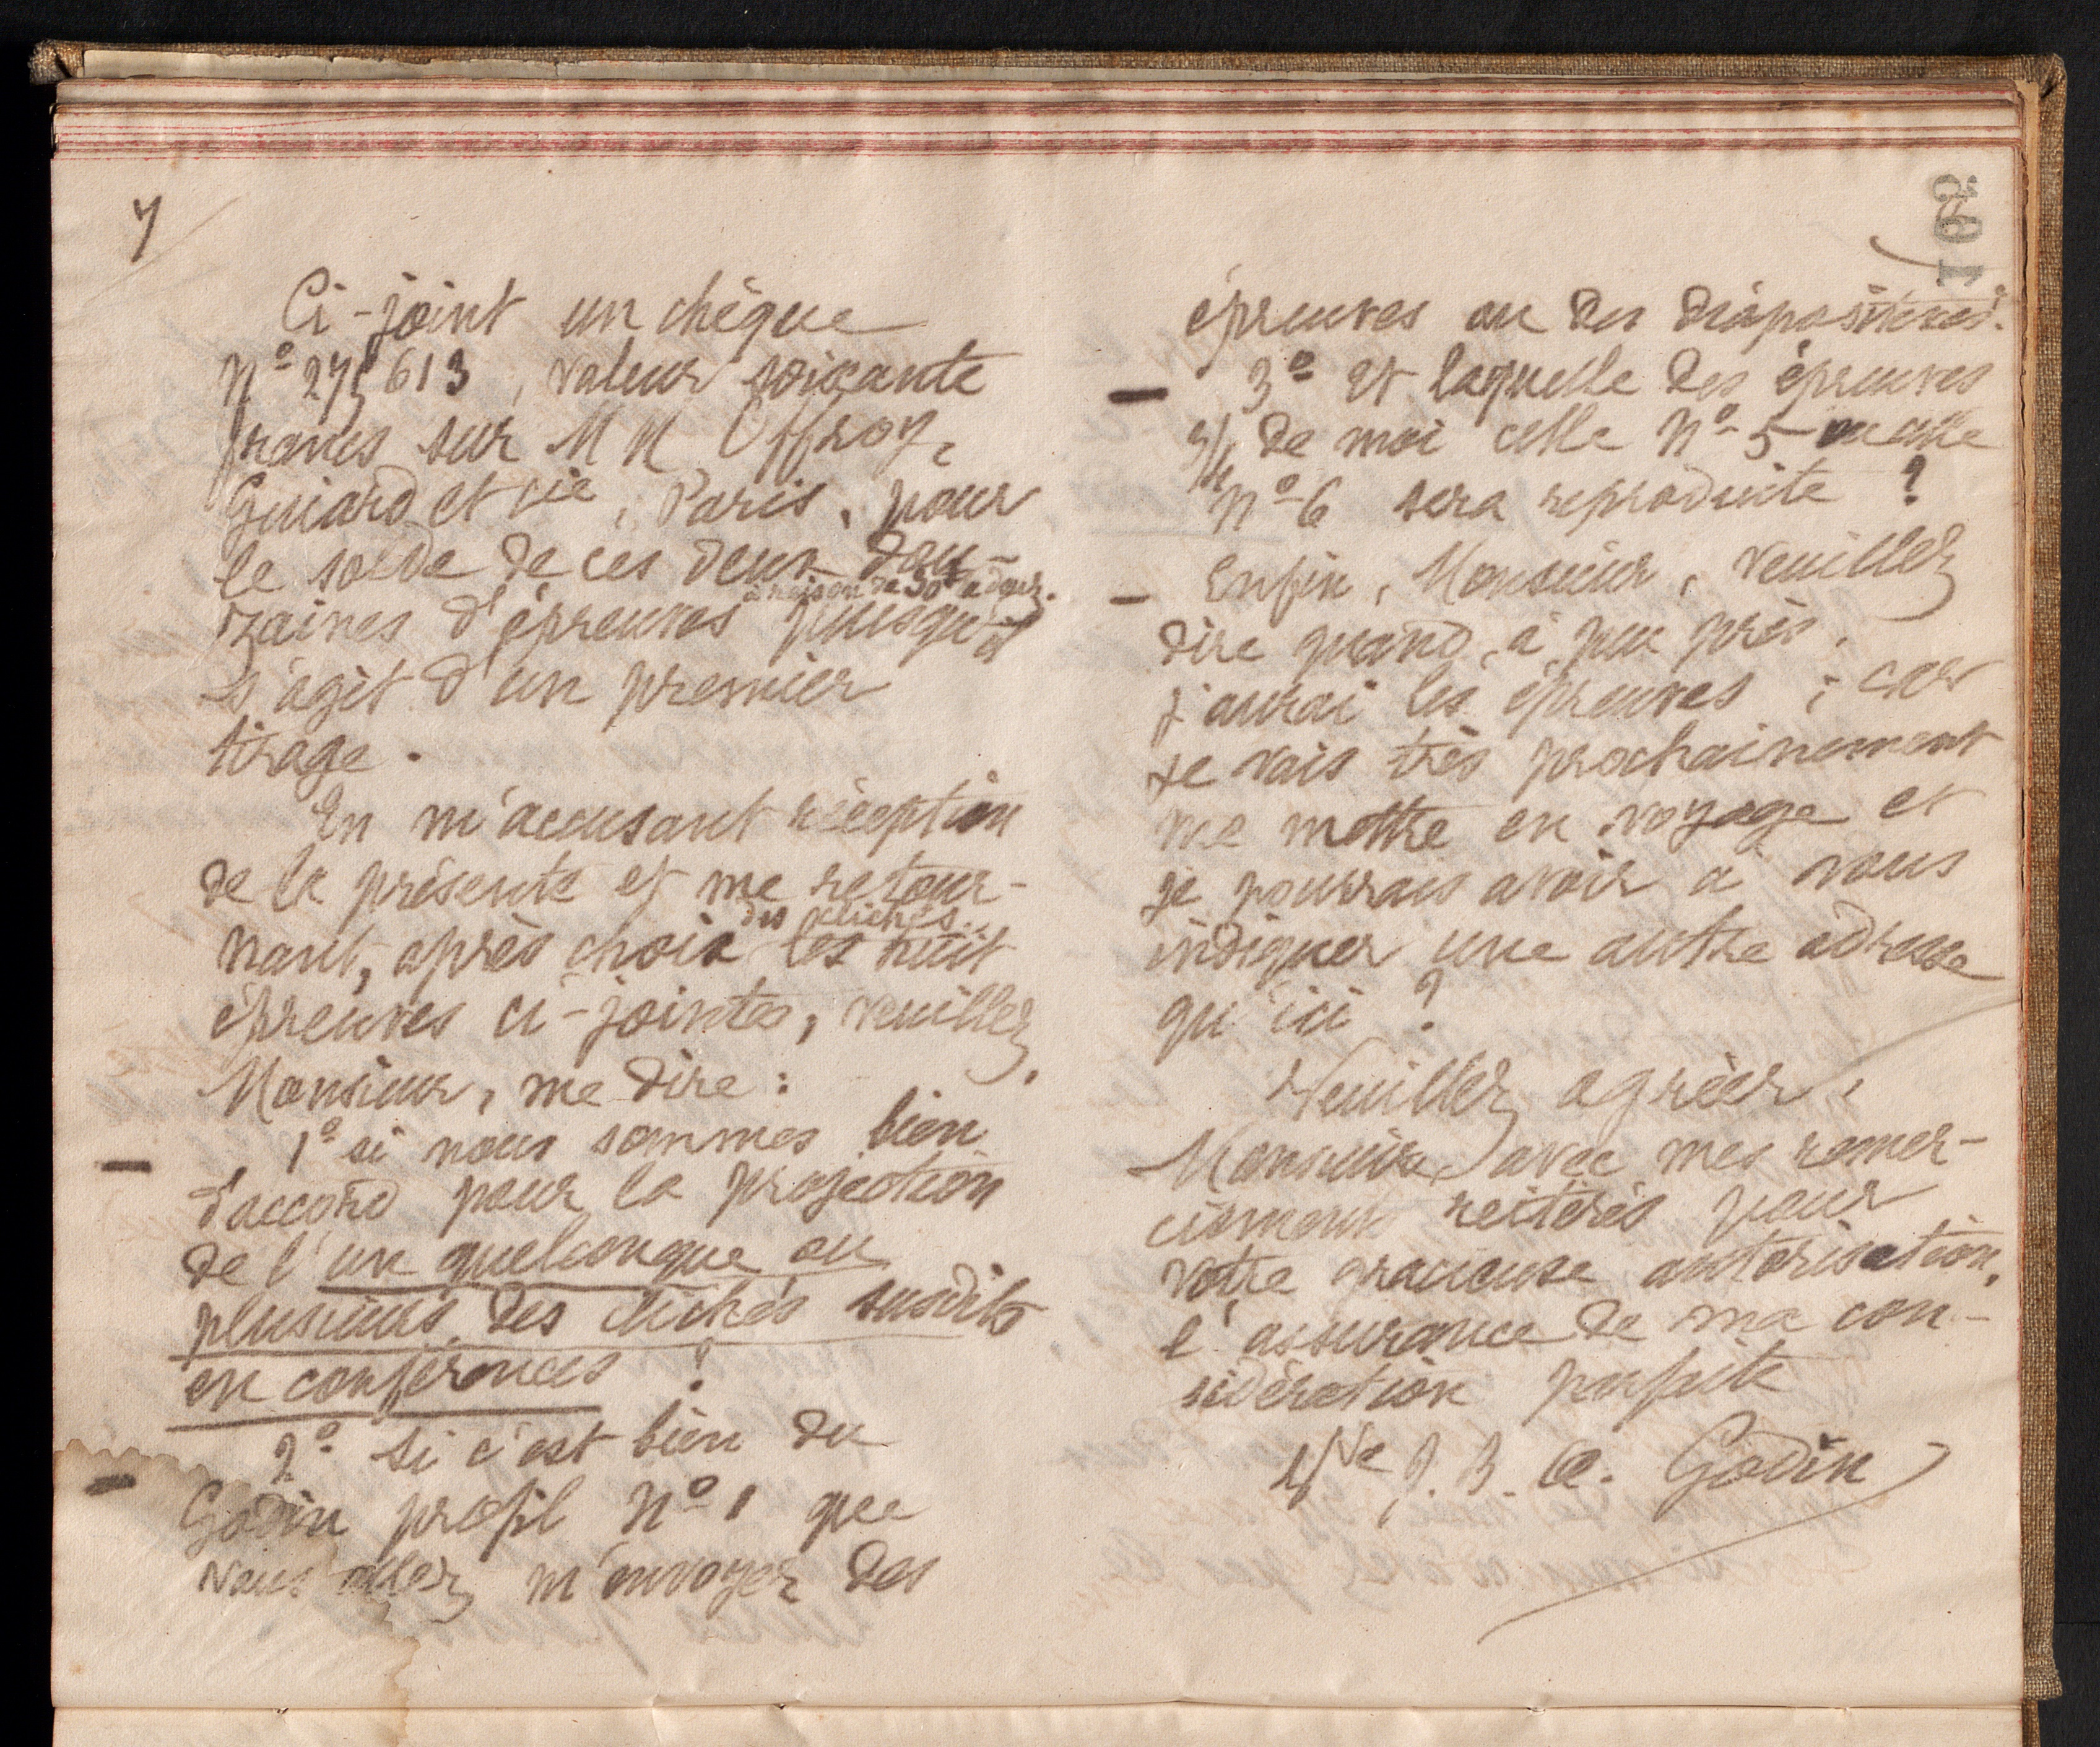 7
Ci-joint un chèque
N° 275613, valeur soixante
francs sur MM Offroy,
Guiard et cie, Paris, pour
le solde de ces deux dou-
à raison de 30f la douz.
zaines d'épreuves puisqu'il
s'agit d'un premier
tirage.
En m'accusant réception
de la présente et me retour-
des clichés
nant, après choix les huit
épreuves ci-jointes, veuillez,
Monsieur, me dire :
1° si nous sommes bien
d'accord pour la projection
de l'un quelconque ou
plusieurs des clichés susdits
en conférences ?
2° Si c'est bien du
Godin profil N° 1 que
vous allez m'envoyer des
162
épreuves ou des diapositives.
3° et laquelle des épreuves
3/4 de moi celle N° 5 ou celle
N° 6 sera reproduite ?
Enfin, Monsieur, veuillez
dire quand, à peu près,
j'aurai les épreuves ; car
je vais très prochainement
me mettre en voyage et
je pourrais avoir à vous
indiquer une autre adresse
qu'ici ?
Veuillez agréer,
Monsieur, avec mes remer-
ciements réitérés pour
votre gracieuse autorisation,
l'assurance de ma con-
sidération parfaite
Vve J. B. A. Godin